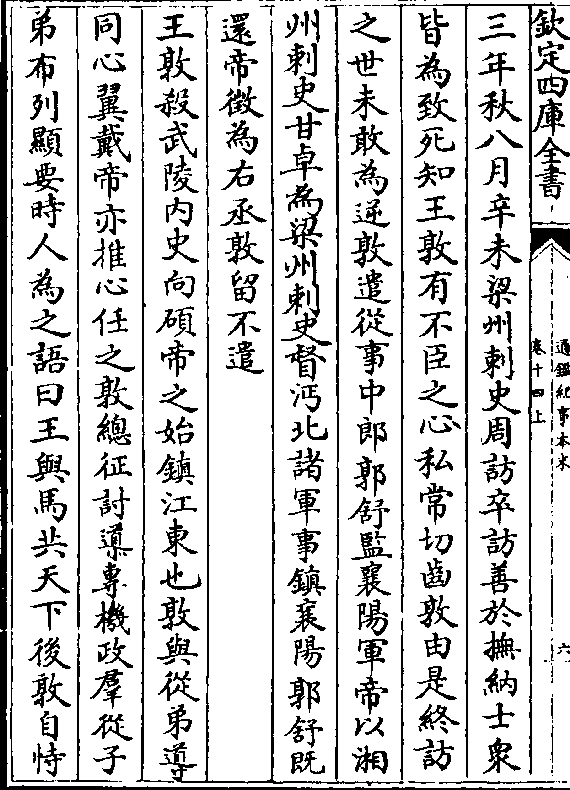 欽定四庫全書
通鑑紀事本末
卷十四上
六
三年秋八月辛未梁州刺史周訪卒訪善於撫納士衆
皆為致死知王敦有不臣之心私常切齒敦由是終訪
之世未敢為逆敦遣從事中郎郭舒監襄陽軍帝以湘
州刺史甘卓為梁州刺史督沔北諸軍事鎮襄陽郭舒既
還帝徵為右丞敦留不遣
王敦殺武陵内史向碩帝之始鎮江東也敦與從弟導
同心翼戴帝亦推心任之敦總征討導專機政羣從子
弟布列顯要時人為之語曰王與馬共天下後敦自恃